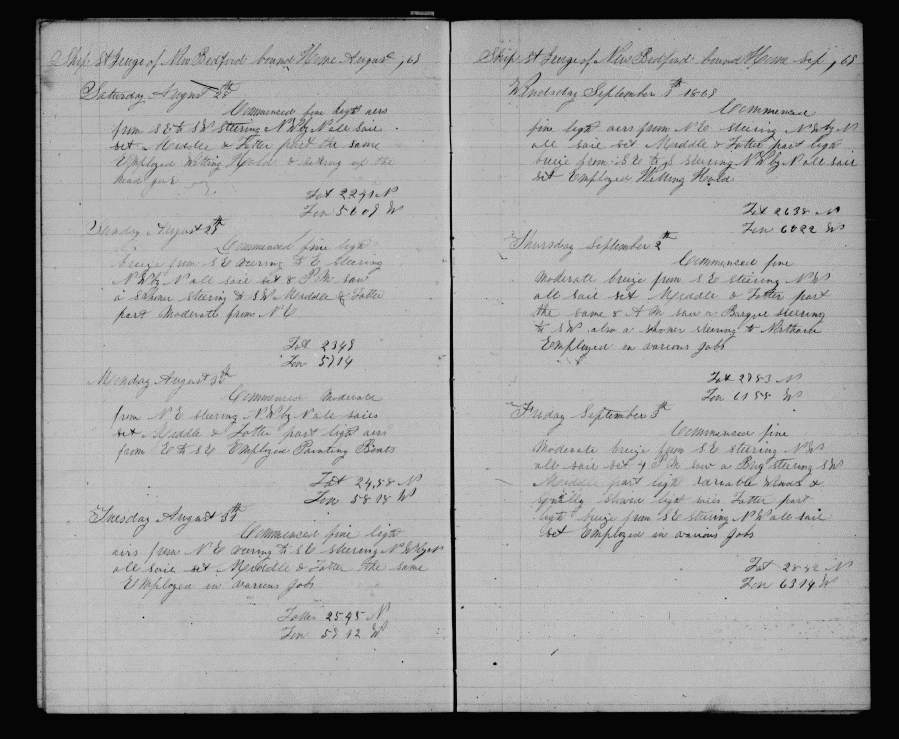 Ship St George of New Bedford bound Home August, 68
Saturday August 28th
Commenced fine light airs
from SE to SW steering NW by N all sail
set Middle & Latter part the same
Employed Wetting Hold & setting up the
head gear
Lat 2291 N
Lon 5609 W
Sunday August 29th
Commenced fine light
breeze from SE veering to E steering
NW by N all sail set & P.M. saw
a Schoner steering to SW Middle & Latter
part Moderate from NE
Lat 2348
Lon 5714
Monday August 30th
Commenced Moderate
from NE steering NW by N all sailes
set Middle & Latter part light airs
from E to SE Employed Painting Boats
Lat 24,58 N
Lon 5818 W
Tuesday August 31
Commenced fine light
airs from NE veering to SE steering NW by N
all sail set Middle & Latter the same
Employed in various Jobs
Latter 2545 N
Lon 5912 W
Ship St George of New Bedford bound Home Sep, 68
Wendsday September 1th 1868
Commenced
fine light airs from NE steering NW by N
all sail set Middle & Latter part light
breize from SE to S steering NW by N all sail
set Employed Wetting Hold
Lat 2638 N
Lon 6022 W
Thursday September 2th
Commenced fine
Moderate breize from SE steering NW
all sail set Middle & Latter part
the same & A M saw a Barque steering
to SW also a shoner steering to Northard
Employed in various Jobs
Lat 2783 N
Lon 6158 W
Friday September 3th
Commenced fine
Moderate breize from SE steering NW
all sail set & P M saw a Brig steering SW
Middle part light variable winds &
squally light Latter part
light breize from SE steering NW all sail
set Employed in various Jobs
Lat 2882 N
Lon 6314 W